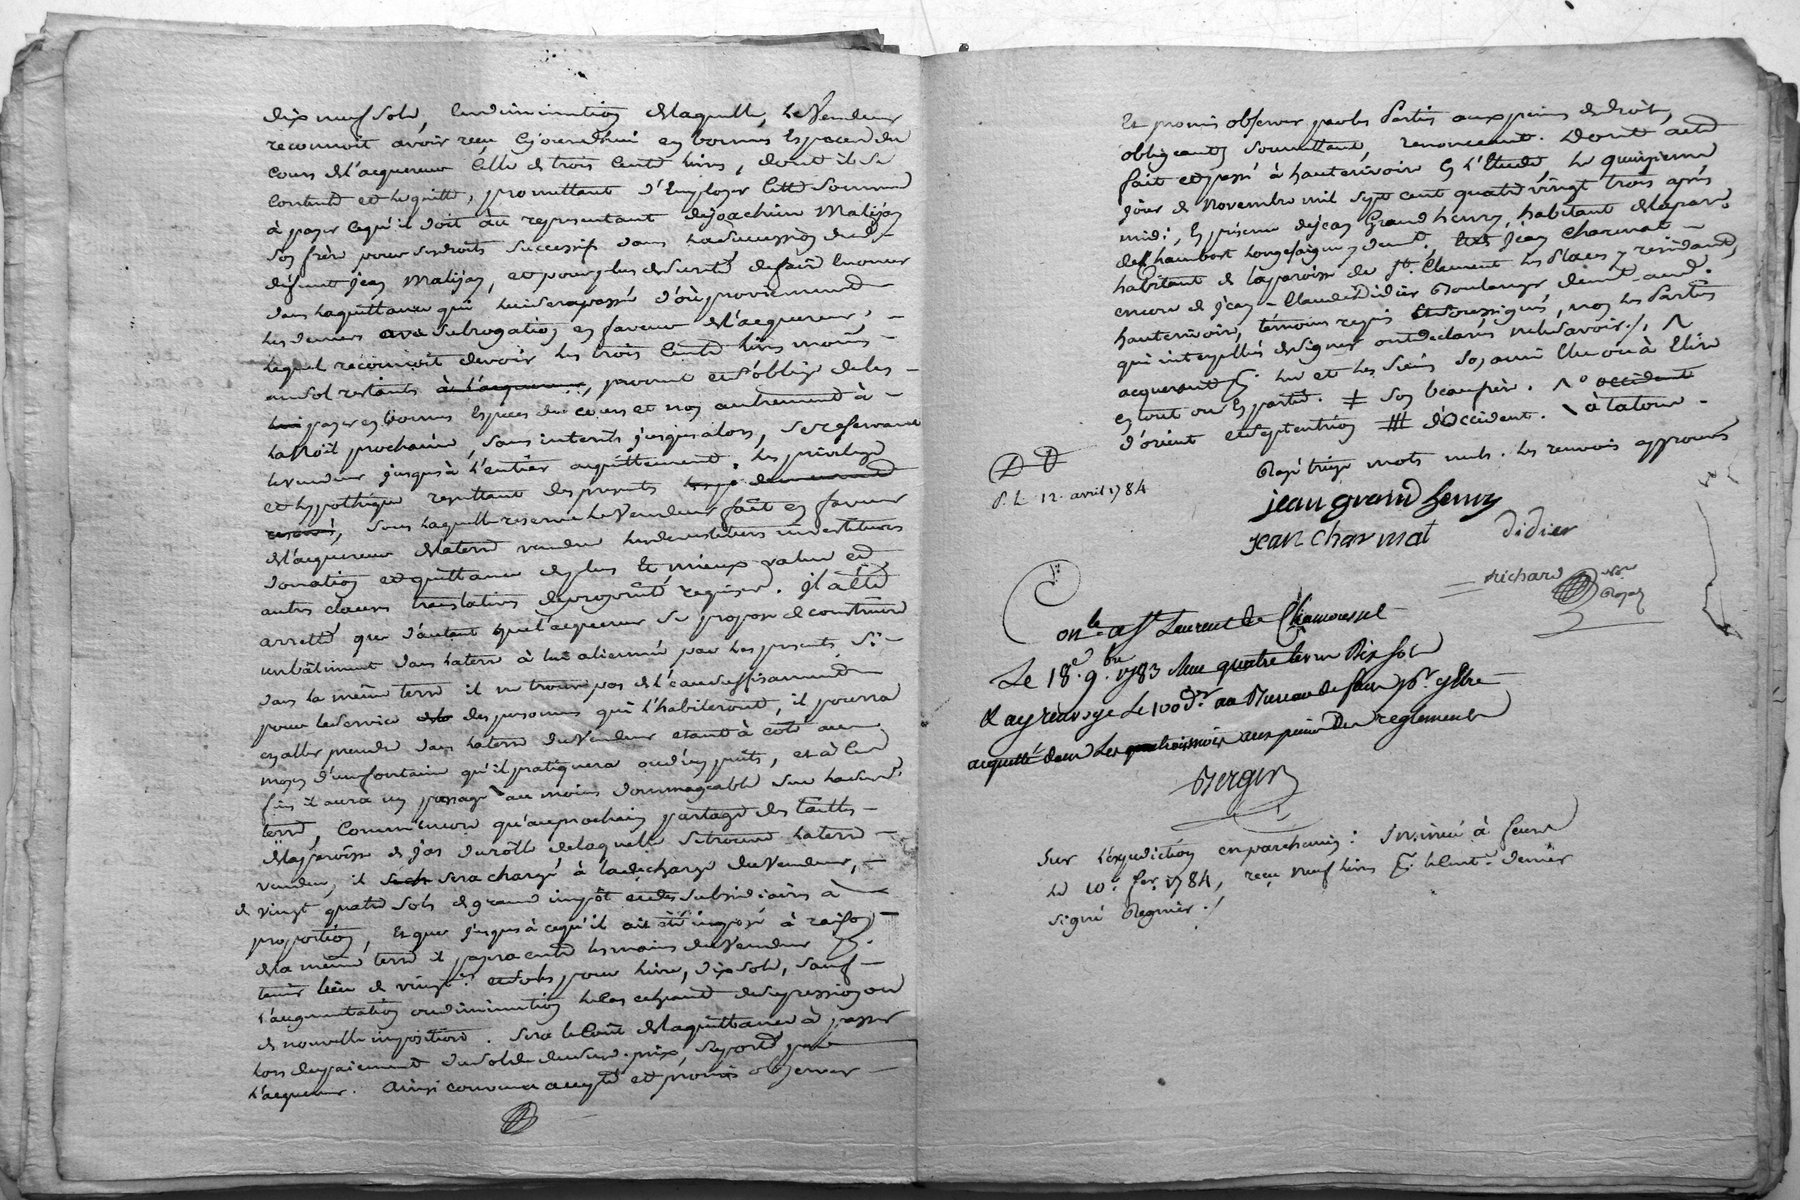 dix neuf sols, en diminution de laquelle, le vendeur
reconnoit avoir reçu cejourd'hui en bonnes especes du
cours de l'acquereur celle de trois cents livres, dont il se
contente et le quitte, promettant d'employer cette somme
à payer ce qu'il doit au representant de joachim Malijay
son frère pour ses droits successifs dans la succession dud.
défunt jean Malijay, et pour plus de sureté de faire enoncer
dans la quittance qui lui sera passé d'où proviennent
les deniers avec subrogation en faveur de l'acquereur,
lequel reconnoit devoir les trois cents livres moins
un sol restants à l'acquereur, promet et s'oblige de les
payer en bonnes especes du cours et non autrement à
la noël prochaine, sans interets jusqu'alors, se reservant le
vendeur jusqu'à l'entier acquittement, les privilege
et hypothèque resultant des presentes
sous laquelle reserve le vendeur fait en faveur
de l'acquereur de la terre vendue les devestitures investitures
donation et quittance de plus et mieux value et
autres clauses translatives de proprieté requises. Il a été
arretté que d'autant que l'acquereur se propose de construire
un bâtiment dans la terre à lui alienné par les presentes, si
dans la même terre il ne trouve pas de l'eau suffisamment
pour le service des personnes qui l'habiteront, il pourra
en aller prendre dans la terre du vendeur etant à coté au
moyen d'une fontaine qu'il pratiquera ou d'un puits, et à cet
fin il aura un passage au moins dommageable sur la susd.
terre, Convenu encore qu'au prochain partage des tailles
de la paroisse de jas du rolle de laquelle se trouve la terre
vendue, il sera chargé à la decharge du vendeur,
de vingt quatre sols de grand impôt et des subsidiaires à
proportion, et que jusqu'à ce qu'il ait été imposé à raison
de la même terre il payera entre les mains du vendeur
et sols pour livre, dix sols, sauf
l'augmentation ou diminution le cas echeant de supression ou
de nouvelle imposition. Sera le cout de la quittance à passer
lors du paiement du solde du sud. prix, suporté par
l'acquereur. Ainsi convenu accepté et promis observer
Et promis observer par les Parties aux peines de droit,
obligeants soumettant, renonceant. Dont acte
fait et passé à hauterivoire en l'Etude, le quinzieme
jour de Novembre mil sept cent quatre vingt trois après
midi, en présence de jean Grand henry habitant de la par.
de Chambost longesaigne y demt., jean Charmat
habitant de la paroisse de St. Clement les Places y residant,
encore de jean Claude Didier Boulanger demt. aud.
hauterivoire, témoins requis et soussignés, non les Parties
qui interpellées de signer ont declarés ne le savoir./.
acquereur lui et les siens son ami elu ou à Elire
en tout ou en partie. ǂ son beaupère. occident
d'orient et septentrion d'Occident. à la tour.
Rayé treize mots nuls. les renvois approuvés
P. L. 12. avril 1784
jean grand henry
jean charmat
didier
richard nore
Royal
Onle. a St Laurent de Chamousset
Le 18e. 9.bre 1783 Reçu quatre livres Dix sols
& ay renvoyé le 100 dr. au Bureau de
acquitté dans les trois mois aux peines Du reglement
Berger
Sur l'expedition en parchemin: Insinué à feurs
le 10. fer. 1784, reçu neuf livres le cent. denier
signé Regnier./